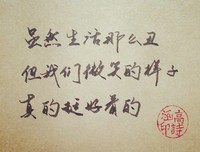 虽然生活那么丑
但我们微笑的样子
真的挺好看的